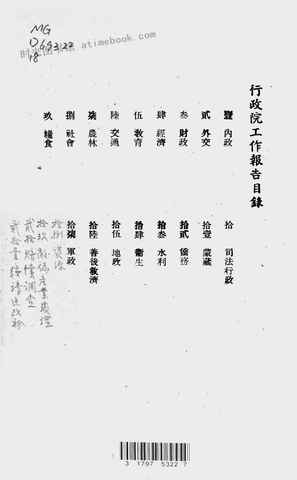 MG
D693.22
18
时光图书馆 atimebook.com
行政院工作報告目錄
壹 內政
貳 外交
叁 財政
肆 經濟
伍 教育
陸 交通
柒 農林
捌 社會
玖 糧食
拾 司法行政
拾壹 蒙藏
拾貳 僑務
拾叁 水利
拾肆 衞生
拾伍 地政
拾陸 善後救濟
拾柒 軍政
拾捌 資源
拾玖 敵偽產業處理
貳拾 賠償調查
貳拾壹
3 1797 5322 7